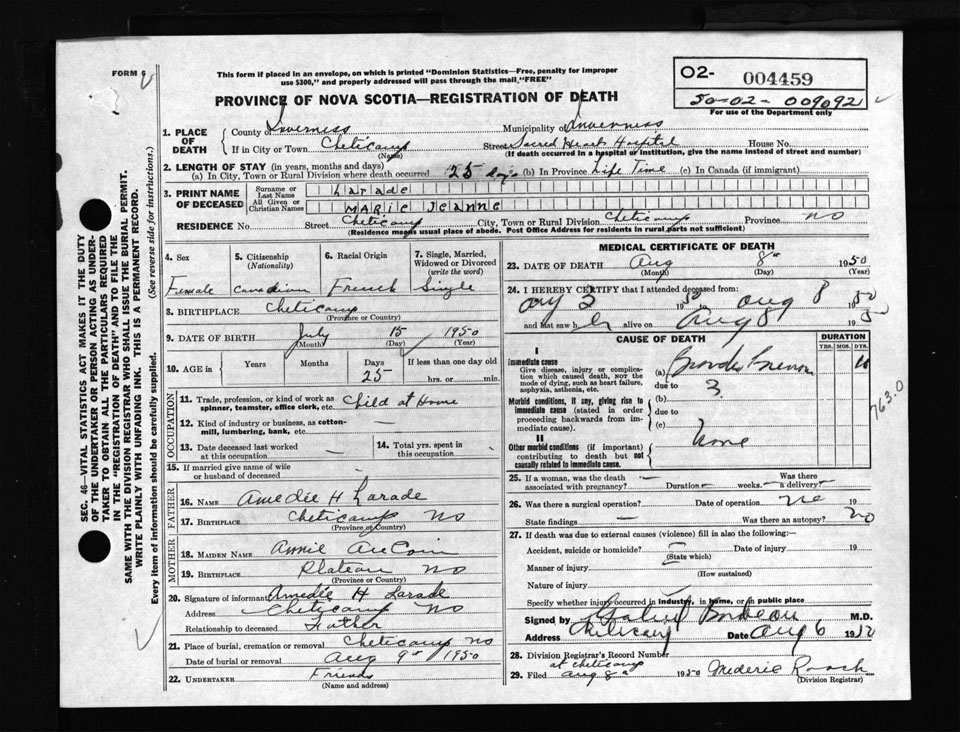 FORM 6
This form if placed in an envelope, on which is printed "Dominion Statistics—Free, penalty for improper
use $300," and properly addressed will pass through the mail, "FREE"
PROVINCE OF NOVA SCOTIA—REGISTRATION OF DEATH
O2- 004459
50-02-009092
For use of the Department only
1. PLACE OF DEATH
County of Inverness Municipality of Inverness
If in City or Town Cheticamp Street Sacred Heart Hospital House No.
(Name) (If death occurred in a hospital or institution, give the name instead of street and number)
2. LENGTH OF STAY (in years, months and days)
(a) In City, Town or Rural Division where death occurred 25 days (b) In Province Life Time (c) In Canada (if immigrant)
3. PRINT NAME OF DECEASED
Surname or Last Name Larade
All Given or Christian Names MARIE JEANNE
RESIDENCE No. Street Cheticamp City, Town or Rural Division Cheticamp Province NS
(Residence means usual place of abode. Post Office Address for residents in rural parts not sufficient)
4. Sex 5. Citizenship (Nationality) 6. Racial Origin 7. Single, Married, Widowed or Divorced (write the word)
Female Canadian French Single
8. BIRTHPLACE Cheticamp
(Province or Country)
9. DATE OF BIRTH July 15 1950
(Month) (Day) (Year)
10. AGE in Years Months Days 25 If less than one day old
hrs. or min.
OCCUPATION
11. Trade, profession, or kind of work as spinner, teamster, office clerk, etc. Child at Home
12. Kind of industry or business, as cotton-mill, lumbering, bank, etc. —
13. Date deceased last worked at this occupation — 14. Total yrs. spent in this occupation —
15. If married give name of wife or husband of deceased —
FATHER
16. NAME Amedie H Larade
17. BIRTHPLACE Cheticamp NS
(Province or Country)
MOTHER
18. MAIDEN NAME Annie AuCoin
19. BIRTHPLACE Plateau NS
(Province or Country)
20. Signature of informant Amedée H Larade
Address Cheticamp NS
Relationship to deceased Father
21. Place of burial, cremation or removal Cheticamp NS
Date of burial or removal Aug 9th 1950
22. UNDERTAKER Friends
(Name and address)
MEDICAL CERTIFICATE OF DEATH
23. DATE OF DEATH Aug 8th 1950
(Month) (Day) (Year)
24. I HEREBY CERTIFY that I attended deceased from:
3 1950 to Aug 8 1950
and last saw h alive on Aug 8 1950
CAUSE OF DEATH
DURATION
YRS. MOS. DYS.
I
Immediate cause
Give disease, injury or complication which caused death, not the mode of dying, such as heart failure, asphyxia, asthenia, etc.
(a)
due to 3
Morbid conditions, if any, giving rise to immediate cause (stated in order proceeding backwards from immediate cause).
(b)
due to
(c)
763.0
II
Other morbid conditions (if important) contributing to death but not causally related to immediate cause. None
25. If a woman, was the death associated with pregnancy? — Duration — weeks. Was there a delivery? —
26. Was there a surgical operation? — Date of operation no 19
State findings — Was there an autopsy? no
27. If death was due to external causes (violence) fill in also the following:
Accident, suicide or homicide? Date of injury 19
(State which)
Manner of injury
(How sustained)
Nature of injury
Specify whether injury occurred in industry, in home, or in public place
Signed by M.D.
Address Cheticamp Date Aug 6 1950
28. Division Registrar's Record Number
at Cheticamp
29. Filed Aug 8th 1950 Mederic Roach
(Division Registrar)
SEC. 46—VITAL STATISTICS ACT MAKES IT THE DUTY
OF THE UNDERTAKER OR PERSON ACTING AS UNDERTAKER TO OBTAIN ALL THE PARTICULARS REQUIRED
IN THE "REGISTRATION OF DEATH" AND TO FILE THE
SAME WITH THE DIVISION REGISTRAR WHO SHALL ISSUE THE BURIAL PERMIT.
WRITE PLAINLY WITH UNFADING INK. THIS IS A PERMANENT RECORD.
Every item of information should be carefully supplied. (See reverse side for instructions.)